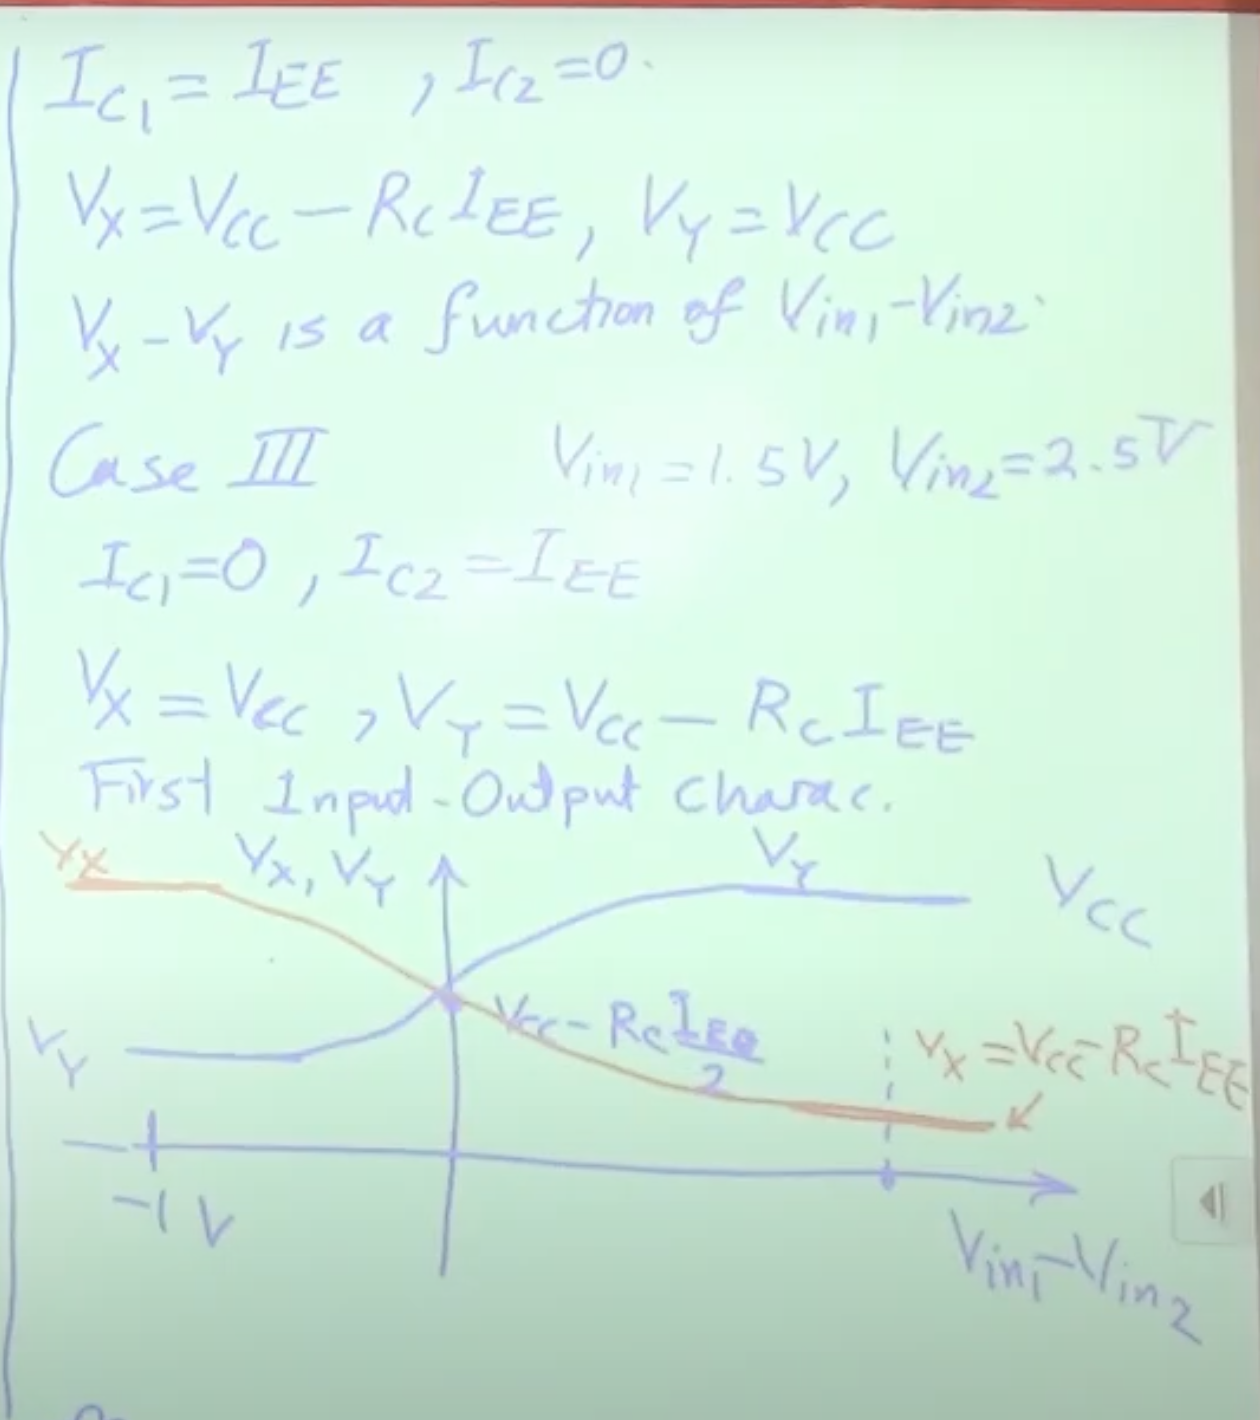 I_C1 = I_EE , I_C2 = 0.
V_X = V_CC - R_C I_EE , V_Y = V_CC
V_X - V_Y is a function of V_in1 - V_in2.
Case III V_in1 = 1.5V, V_in2 = 2.5V
I_C1 = 0 , I_C2 = I_EE
V_X = V_CC , V_Y = V_CC - R_C I_EE
First Input-Output Charac.
V_X
V_X, V_Y
V_Y
V_CC
V_Y
V_CC - R_C I_EE/2
V_X = V_CC - R_C I_EE
-1 V
V_in1 - V_in2